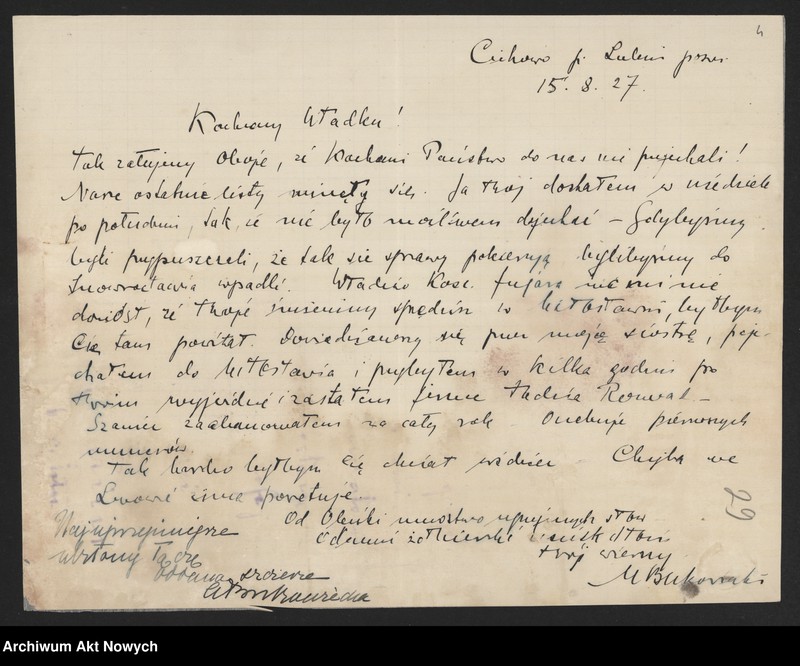 4
Cichowo p. Lubiń pozn.
15. 8. 27.
Kochany Władku!
Tak żałujemy Oboje, że Kochani Państwo do nas nie przyjechali!
Nasze ostatnie listy minęły się. Ja twój dostałem w niedziele
po południu, tak, że nie było możliwem dojechać – Gdybyśmy
byli przypuszczali, że tak się sprawy pokierują bylibyśmy do
Inowrocławia wpadli. Władzio Kosc. fujara nie mi nie
doniósł, że Twoje imieniny spędzisz w Witosławiu, byłbym
Cię tam powitał. Dowiedziawszy się przez moją siostrę, poje-
chałem do Witosławia i przybyłem w kilka godzin po
twoim wyjeździe i zastałem jeszcze Tadzia
Szaniec zaabonowałem na cały rok Oczekuje pierwszych
numerów.
Tak bardzo byłbym Cię chciał widzieć – Chyba we
Lwowie zima powetuje.
Od Oleńki mnóstwo uprzejmych słów
Odemnie żołnierski uścisk dłoni
twój wierny
M Bukowiecki
Najuprzejmiejsze
ukłony łączę
oddana szczerze
ABukowiecka
29
Archiwum Akt Nowych